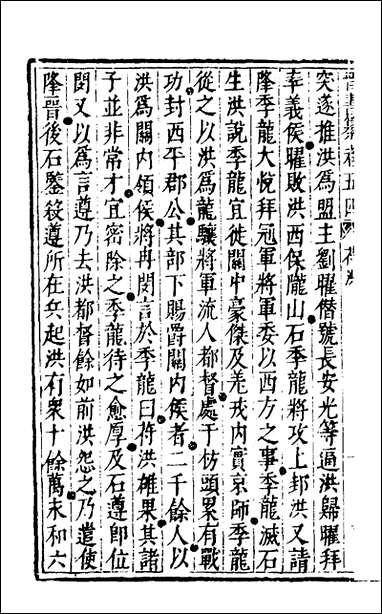 突遂推洪爲盟主劉曜僭號長安光等逼洪歸曜拜
幸義侯曜敗洪西保隴山石季龍將攻上邽洪又請
降季龍大悅拜冠軍將軍委以西方之事季龍滅石
生洪說季龍宜徙關中豪傑及羌戎內實京師季龍
從之以洪爲龍驤將軍流人都督處于枋頭累有戰
功封西平郡公其部下賜爵關內侯者二千餘人以
洪爲關內領侯將冉閔言於季龍曰苻洪雄果其諸
子並非常才宜密除之季龍待之愈厚及石遵即位
閔又以爲言遵乃去洪都督餘如前洪怨之乃遣使
降晉後石鑒殺遵所在兵起洪有衆十餘萬未和六